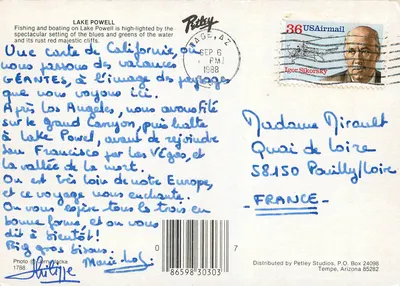 LAKE POWELL
Fishing and boating on Lake Powell is high-lighted by the
spectacular setting of the blues and greens of the water
and its rust red majestic cliffs.
Petley
PAGE, AZ
SEP 6
PM
1988
36 USAirmail
Igor Sikorsky
Une carte de Californie, où
nous passons des vacances
GEANTES, à l'image du paysage
que nous voyons ici.
Après Los Angeles, nous avons filé
sur le grand Canyon, puis halte
à Lake Powel, avant de rejoindre
San Francisco par Las Végas, et
la vallée de la mort.
On est très loin de notre Europe,
et ce voyage nous enchante.
On vous espère tous les trois en
bonne forme, et on vous
dit à bientôt!
Big gros bisous.
Philippe
Madame Mirault
Quai de Loire
58150 Pouilly/Loire
- FRANCE -
Photo by
1788
0 7
86598 30303
Distributed by Petley Studios, P.O. BOX 24098
Tempe, Arizona 85282